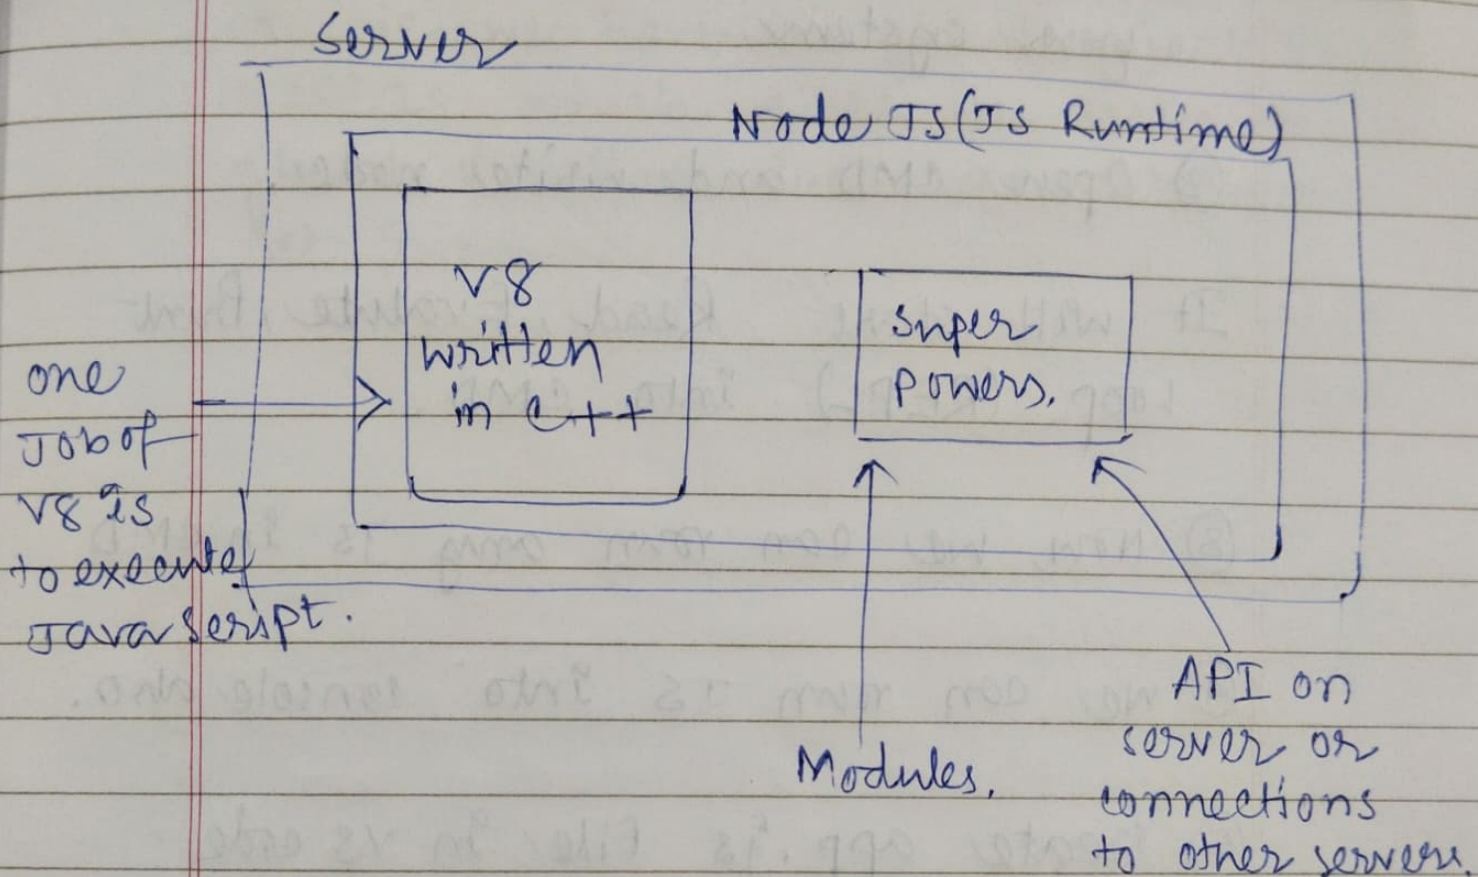 Server
Node JS (JS Runtime)
V8
written
in C++
super
powers.
one
Job of
V8 is
to execute
Java Script.
Modules.
API on
server or
connections
to other servers.